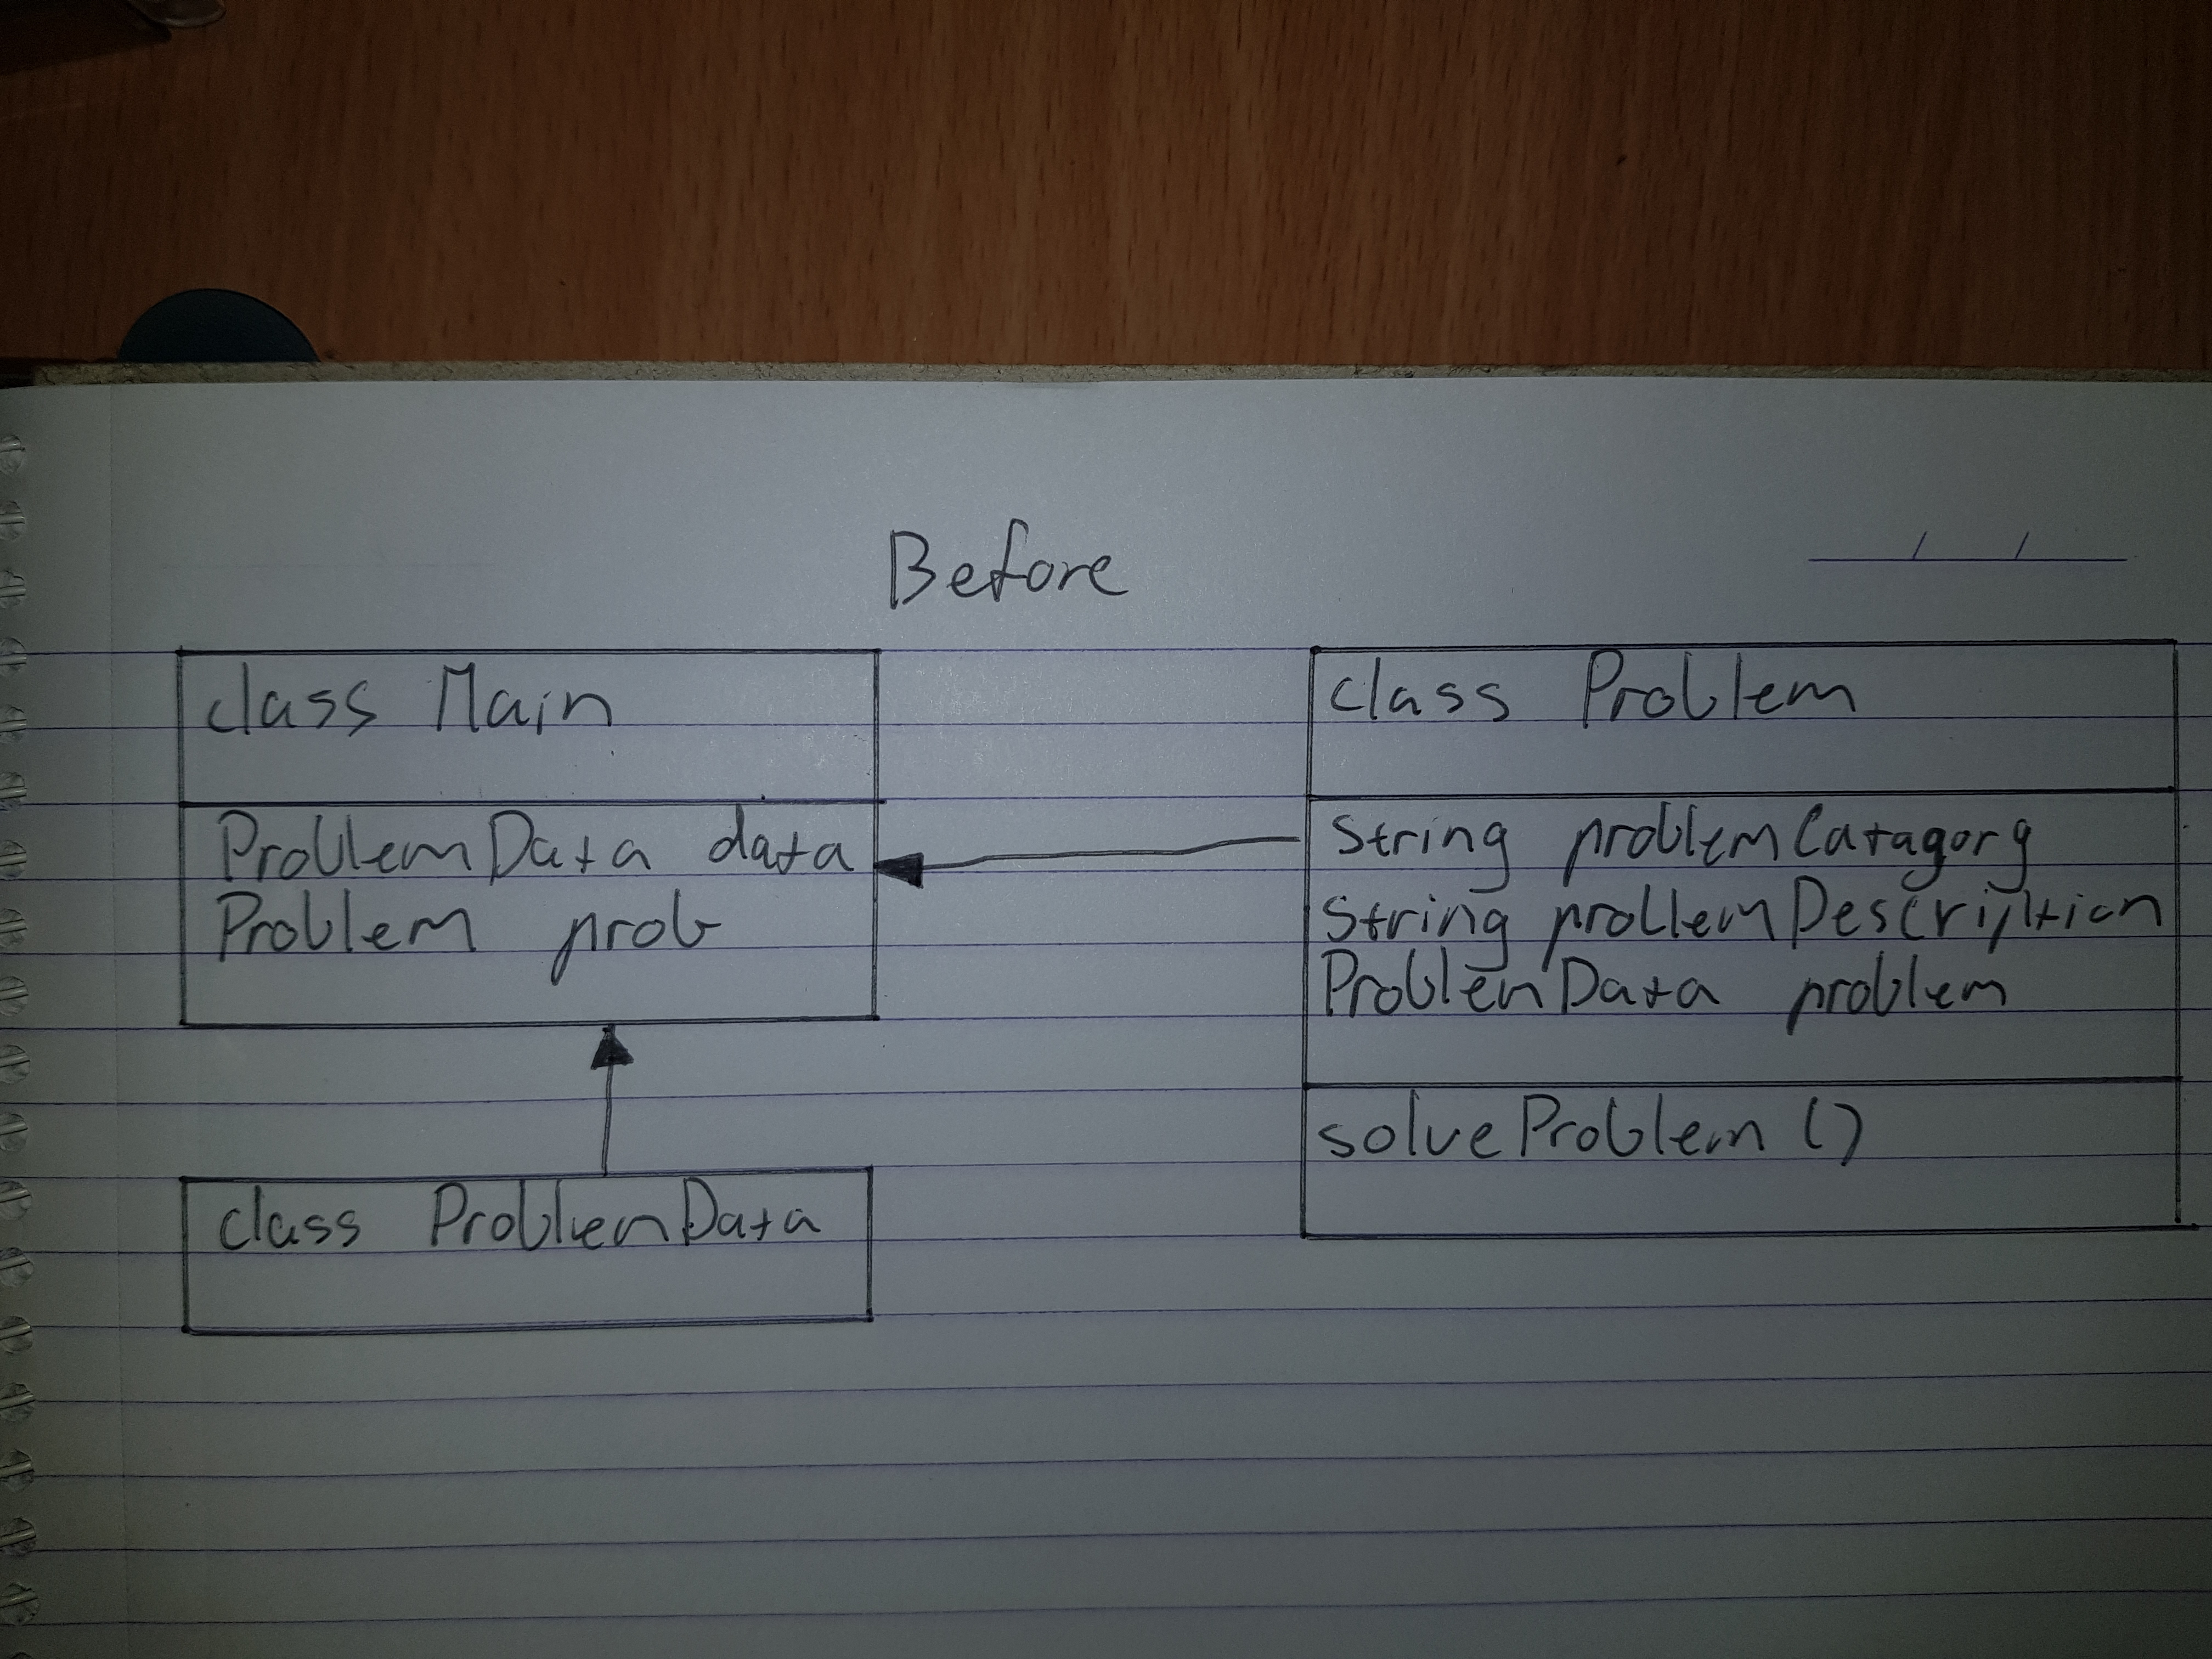 Before
class Main
ProblemData data
Problem prob
class ProblemData
class Problem
String problemCatagory
String problemDescription
ProblemData problem
solveProblem()